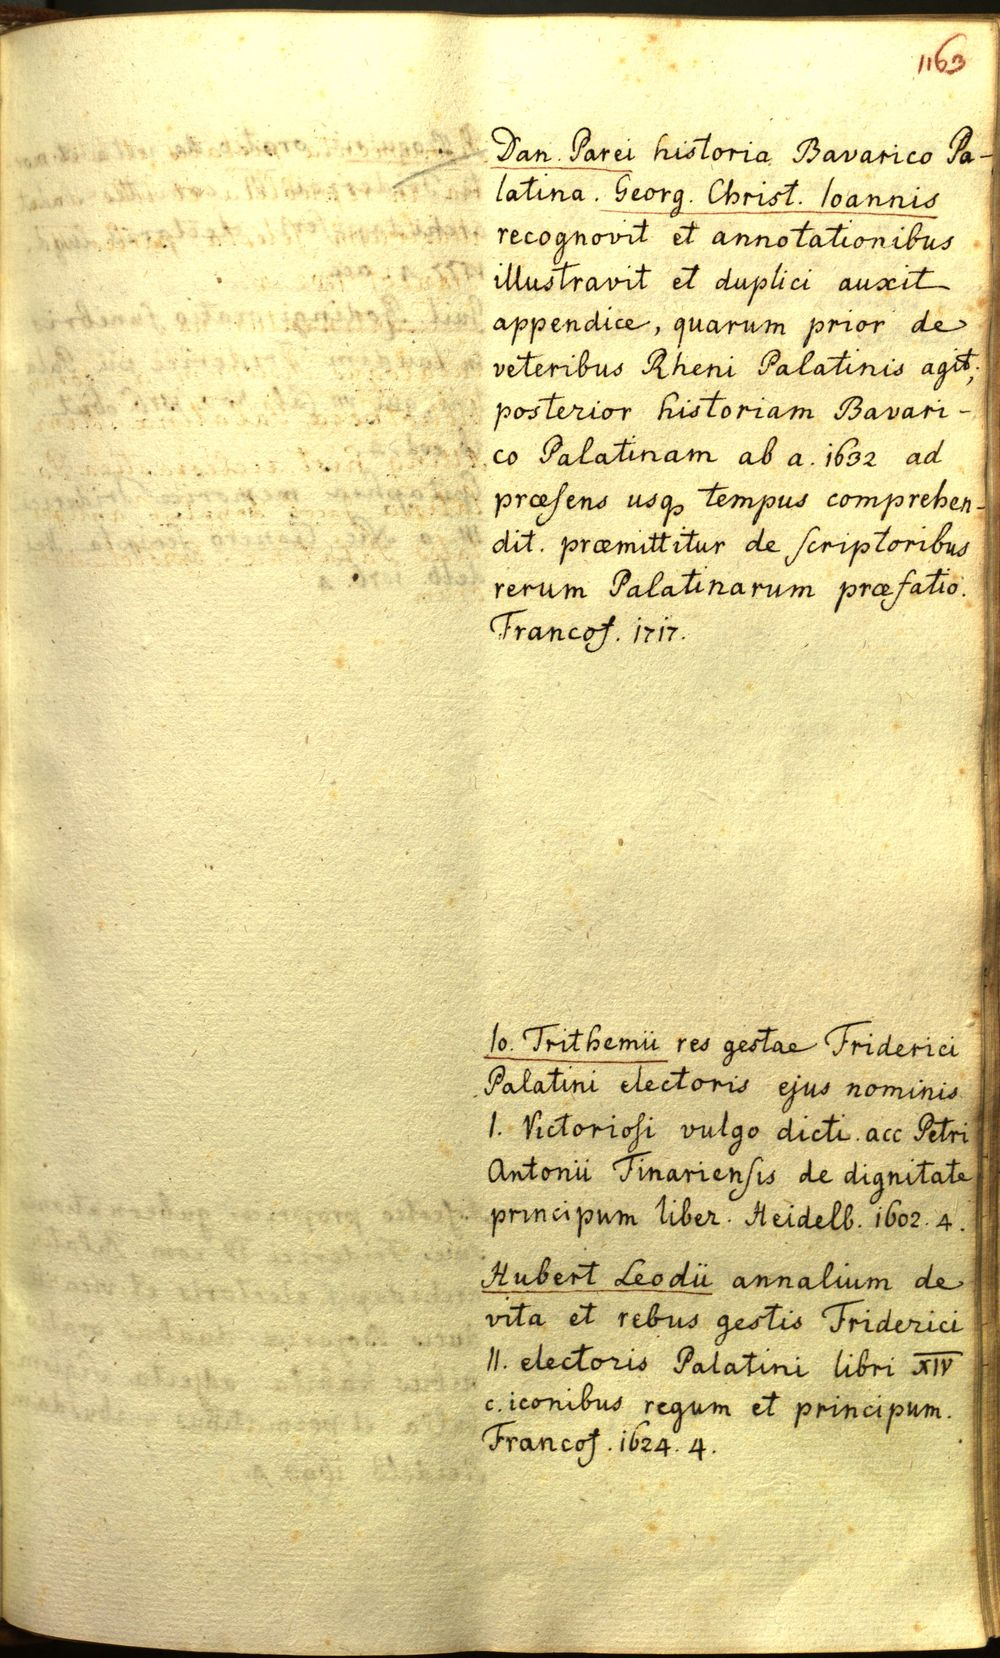 1163
Dan. Parei historia Bavarico Pa-
latina. Georg. Christ. Ioannis
recognovit et annotationibus
illustravit et duplici auxit
appendice, quarum prior de
veteribus Rheni Palatinis agit;
posterior historiam Bavari-
co Palatinam ab a. 1632 ad
præsens usq tempus comprehen-
dit. præmittitur de scriptoribus
rerum Palatinarum præfatio.
Francof. 1717.
Io. Trithemii res gestae Friderici
Palatini electoris ejus nominis
I. Victoriosi vulgo dicti. acc Petri
Antonii Finariensis de dignitate
principum liber. Heidelb. 1602. 4.
Hubert Leodii annalium de
vita et rebus gestis Friderici
II. electoris Palatini libri XIV
c. iconibus regum et principum.
Francof. 1624. 4.